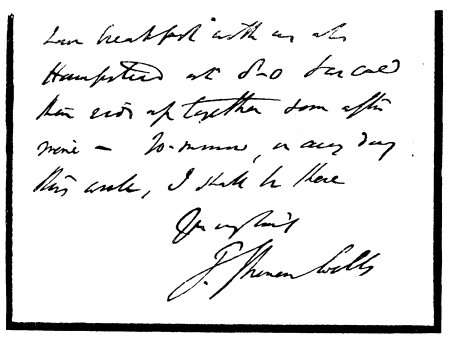 have breakfast with us at
Hampstead at 8-0 and
then ride up together soon after
nine – To-morrow, or any day
this week, I shall be there
Yrs very truly
T. Spencer Wells